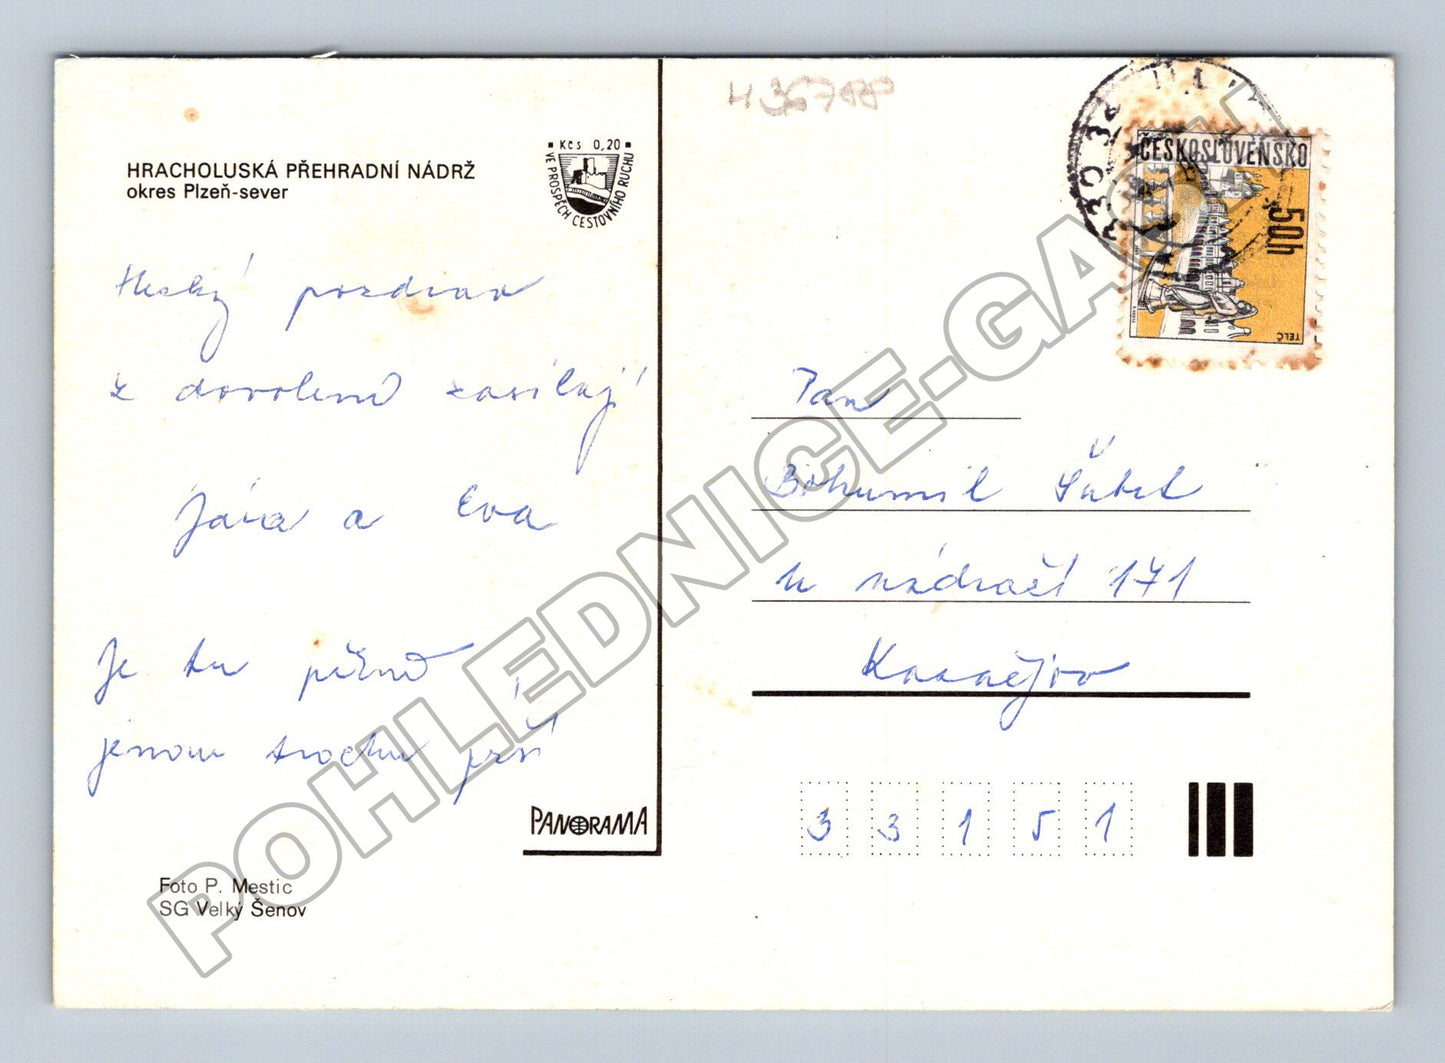 H36788
HRACHOLUSKÁ PŘEHRADNÍ NÁDRŽ
okres Plzeň-sever
Kčs 0,20
VE PROSPĚCH CESTOVNÍHO RUCHU
Hezký pozdrav
z dovolené zasílají
Jára a Eva
Je tu pěkně i
jenom trochu prší
PANORAMA
Foto P. Mestic
SG Velký Šenov
ČESKOSLOVENSKO
50h
TELČ
330 38
Pan
Bohumil
u nádraží 171
Kaznějov
33151
POHLEDNICE-GASCH